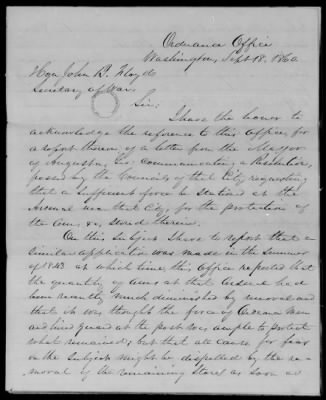 Ordnance Office
Washington, Sept 18. 1860
Hon John B. Floyd
Secretary of War.
Sir:
I have the honor to
acknowledge the reference to this Office, for
a report thereon of a letter from the Mayor
of Augusta, Geo: communicating a Resolution
passed by the Councils of that City requesting
that a sufficient force be stationed at the
Arsenal near that City, for the protection of
the Arms &c, stored therein.
On this subject I have to report that a
similar application was made in the Summer
of 1843 at which time, this Office reported that
the quantity of arms at that Arsenal had
been recently much diminished by removal and
that it was thought the force of Ordnance Men
and hired guard at the post was ample to protect
what remained; but that all cause for fear
on the subject might be dispelled by the re-
moval of the remaining stores as soon as